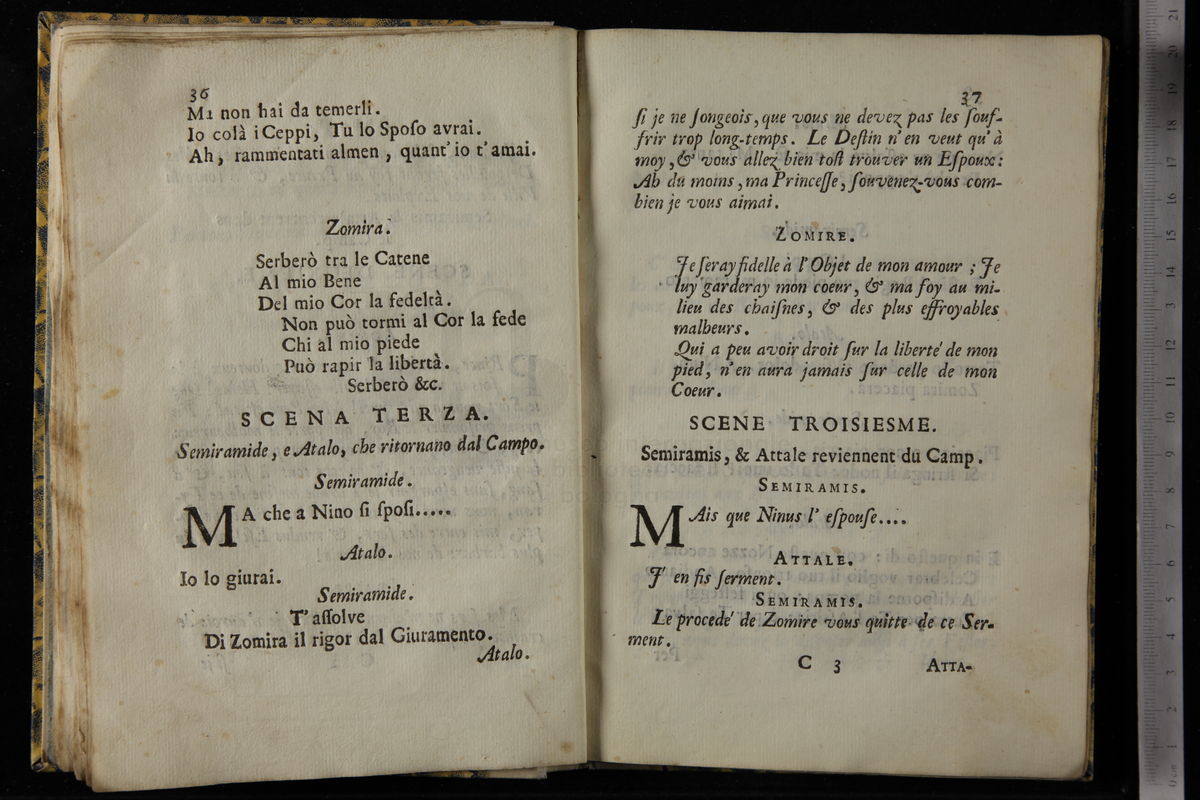 36
Ma non hai da temerli.
Io colà i Ceppi, Tu lo Sposo avrai.
Ah, rammentati almen, quant' io t'amai.
Zomira.
Serberò tra le Catene
Al mio Bene
Del mio Cor la fedeltà.
Non può tormi al Cor la fede
Chi al mio piede
Può rapir la libertà.
Serberò &c.
SCENA TERZA.
Semiramide, e Atalo, che ritornano dal Campo.
Semiramide.
MA che a Nino ſi ſposi.....
Atalo.
Io lo giurai.
Semiramide.
T' aſſolve
Di Zomira il rigor dal Giuramento.
Atalo.
37
ſi je ne ſongeois, que vous ne devez pas les ſouf-
frir trop long-temps. Le Deſtin n'en veut qu'à
moy, & vous allez bien toſt trouver un Eſpoux:
Ah du moins, ma Princeſſe, ſouvenez-vous com-
bien je vous aimai.
ZOMIRE.
Je ſeray fidelle à l'Objet de mon amour; Je
luy garderay mon coeur, & ma foy au mi-
lieu des chaiſnes, & des plus effroyables
malheurs.
Qui a peu avoir droit ſur la liberté de mon
pied, n'en aura jamais ſur celle de mon
Coeur.
SCENE TROISIESME.
Semiramis, & Attale reviennent du Camp.
SEMIRAMIS.
MAis que Ninus l' eſpouſe....
ATTALE.
J' en fis ſerment.
SEMIRAMIS.
Le procedé de Zomire vous quitte de ce Ser-
ment.
C 3 ATTA-